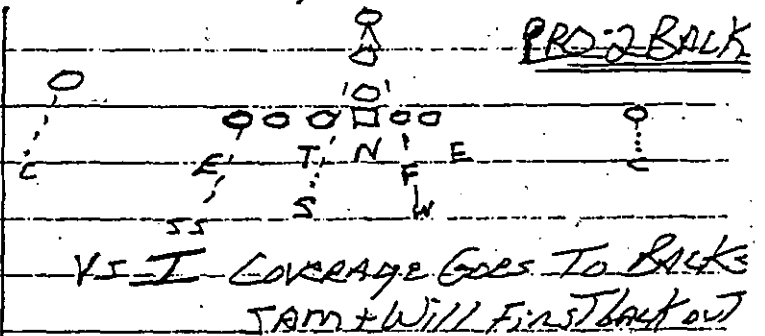 PRO-2 BACK
C E T N F E C
SS S W
VS I COVERAGE GOES TO BACKS
SAM + WILL FIRST BACK OUT